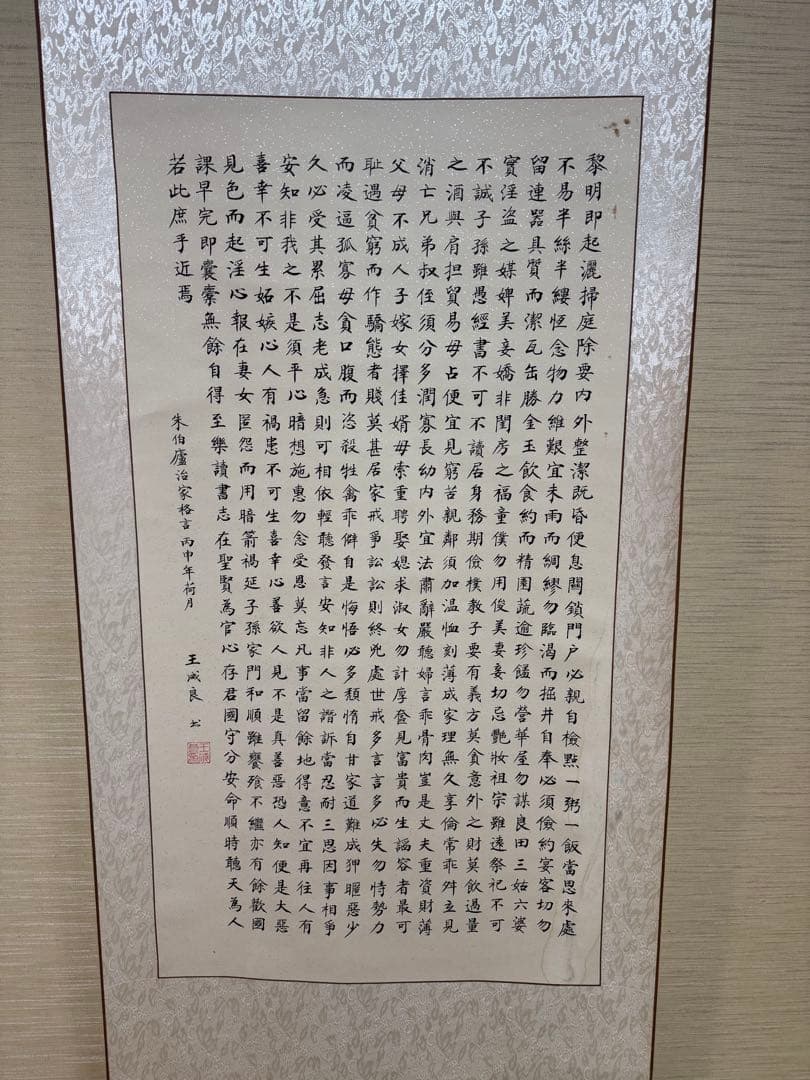 黎明即起灑掃庭除要内外整潔既昏便息關鎖門户必親自檢點一粥一飯當思來處
不易半絲半縷恆念物力維艱宜未雨而綢繆勿臨渴而掘井自奉必須儉約宴客切勿
留連器具質而潔瓦缶勝金玉飲食約而精園蔬逾珍饈勿營華屋勿謀良田三姑六婆
實淫盜之媒婢美妾嬌非閨房之福童僕勿用俊美妻妾切忌艷妝祖宗雖遠祭祀不可
不誠子孫雖愚經書不可不讀居身務期儉樸教子要有義方莫貪意外之財莫飲過量
之酒與肩担貿易毋占便宜見窮苦親鄰須加温恤刻薄成家理無久享倫常乖舛立見
消亡兄弟叔侄須分多潤寡長幼内外宜法肅辭嚴聽婦言乖骨肉豈是丈夫重資財薄
父母不成人子嫁女擇佳婿毋索重聘娶媳求淑女勿計厚奩見富貴而生諂容者最可
耻遇貧窮而作驕態者賤莫甚居家戒爭訟訟則終兇處世戒多言言多必失勿恃勢力
而凌逼孤寡毋貪口腹而恣殺牲禽乖僻自是悔悟必多頹惰自甘家道難成狎暱惡少
久必受其累屈志老成急則可相依輕聽發言安知非人之譖訴當忍耐三思因事相爭
安知非我之不是須平心暗想施惠勿念受恩莫忘凡事當留餘地得意不宜再往人有
喜幸不可生妬嫉心人有禍患不可生喜幸心善欲人見不是真善惡恐人知便是大惡
見色而起淫心報在妻女匿怨而用暗箭禍延子孫家門和順雖饔飧不繼亦有餘歡國
課早完即囊橐無餘自得至樂讀書志在聖賢為官心存君國守分安命順時聽天為人
若此庶乎近焉
朱伯廬治家格言丙申年荷月
王成良 书